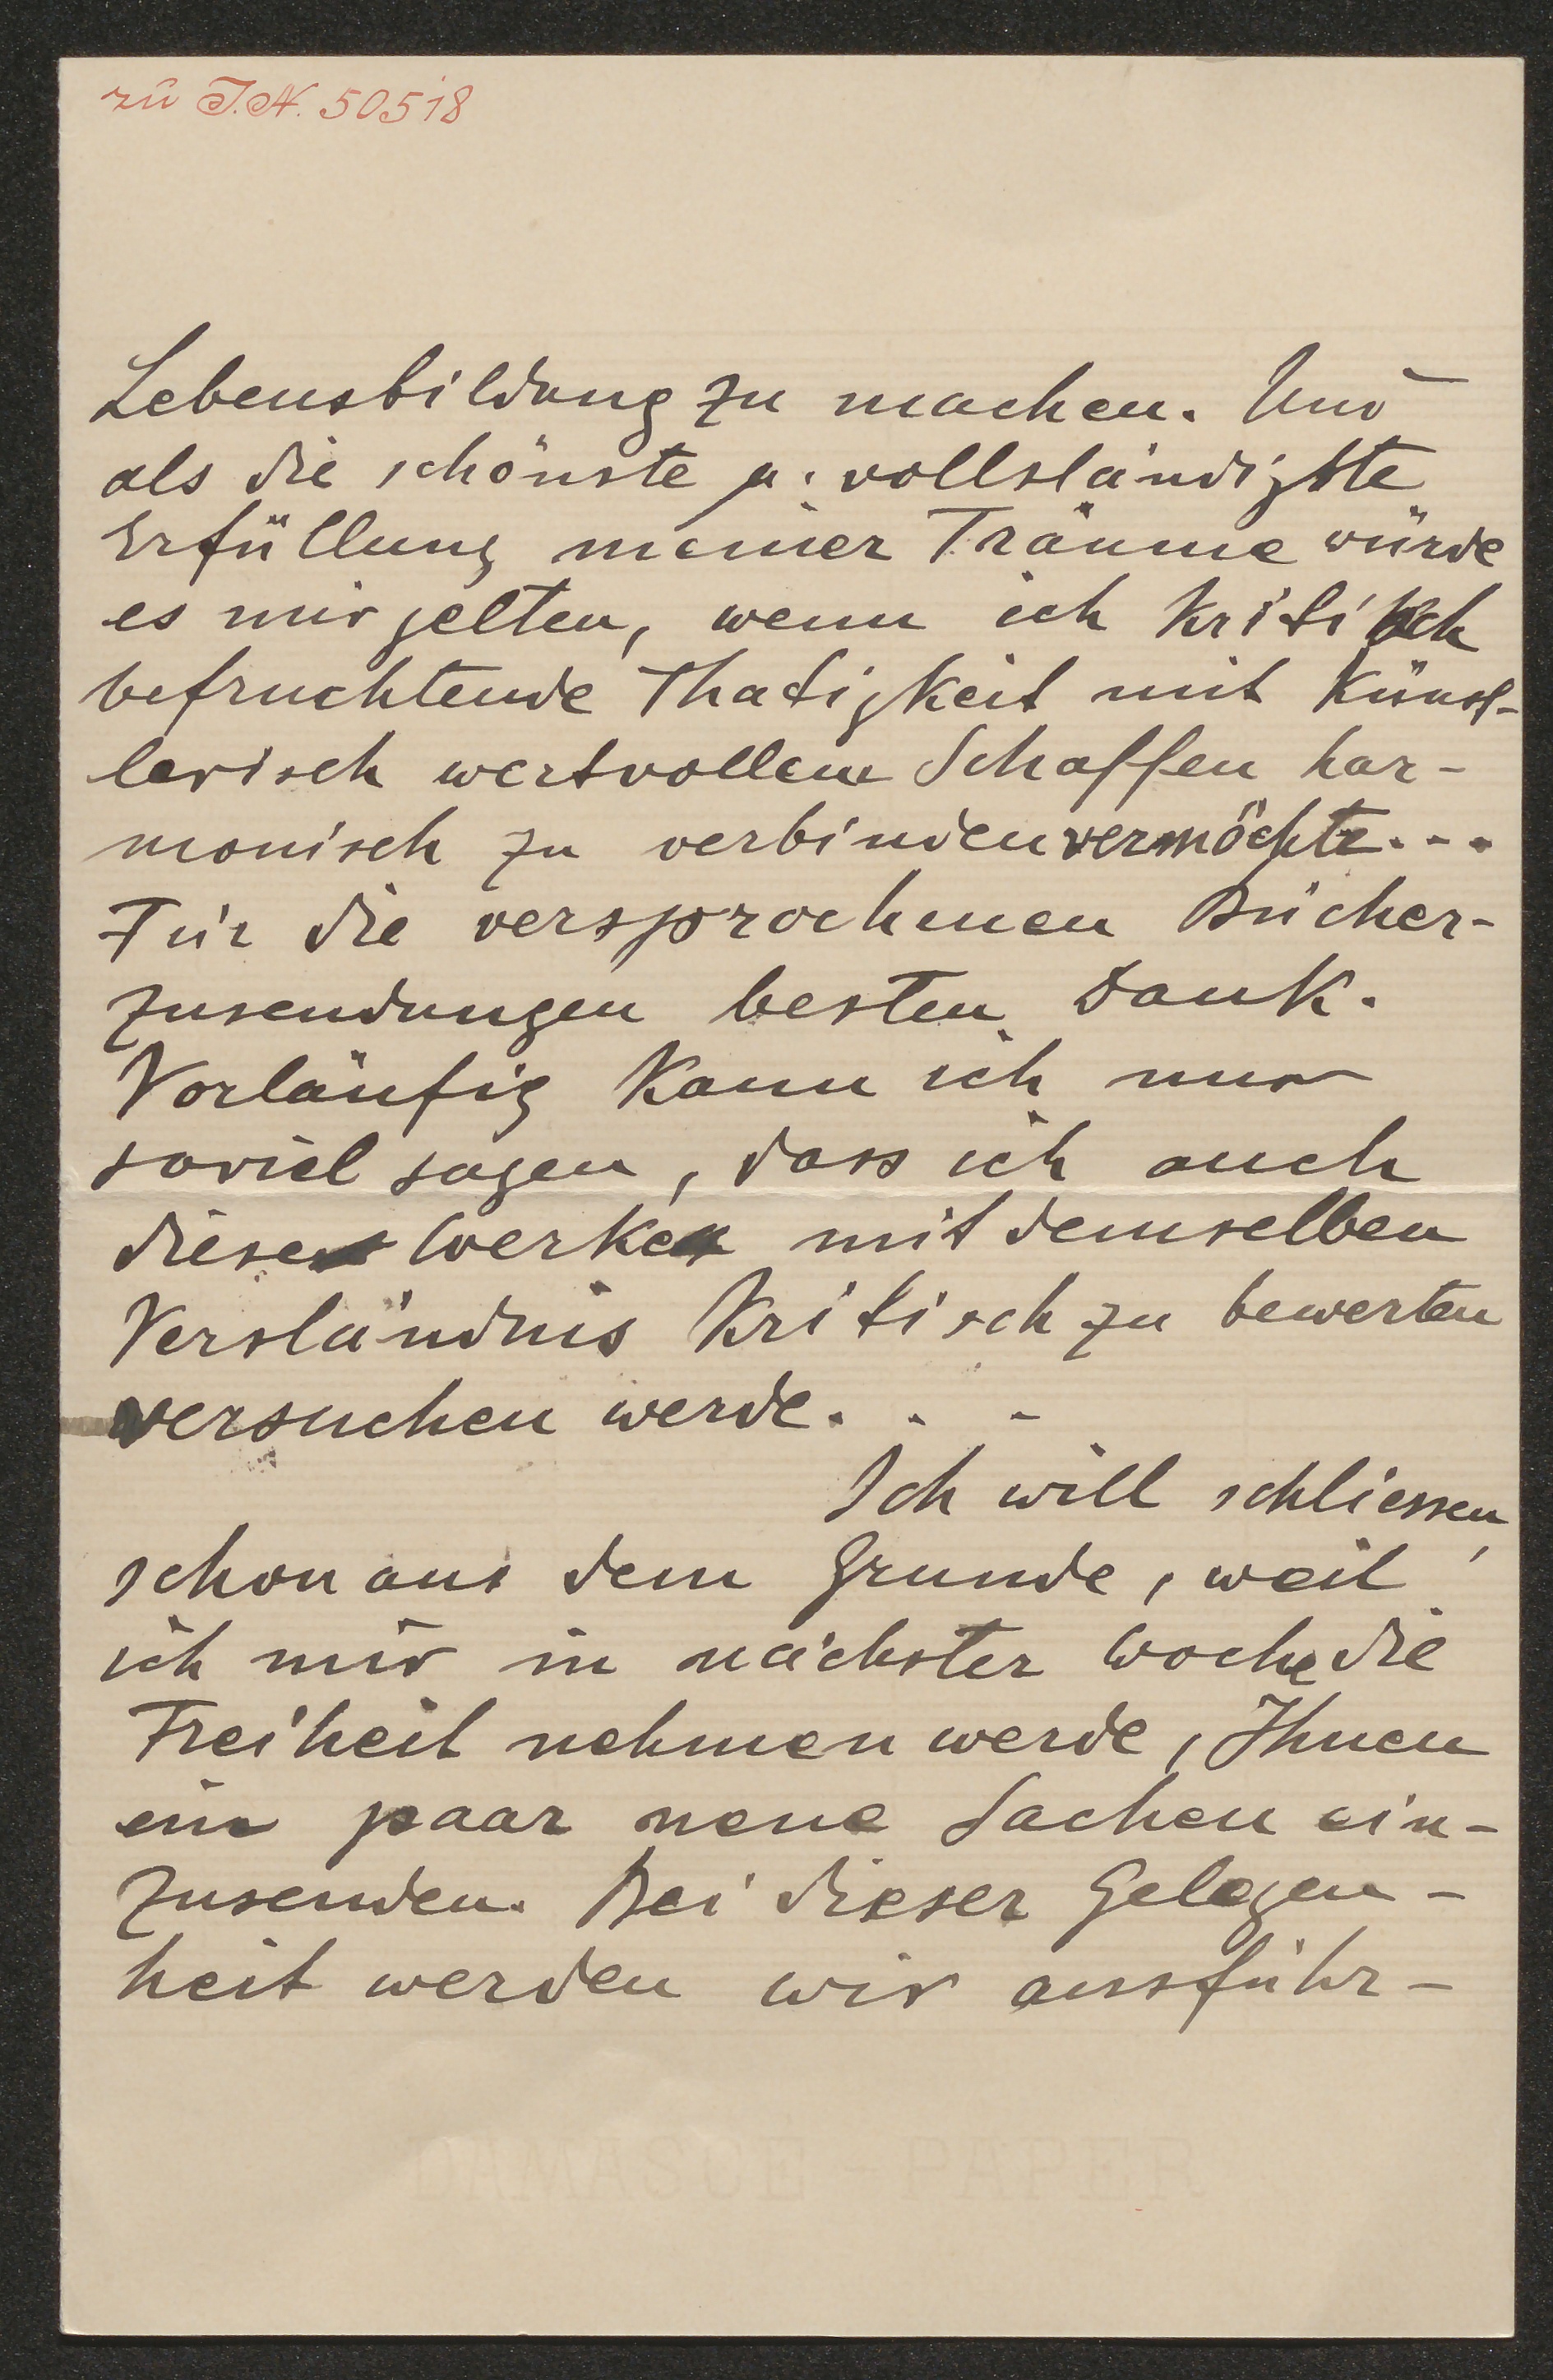 zu I.N. 50518
Lebensbildung zu machen. Und
als die schönste u. vollständigste
Erfüllung meiner Träume würde
es mir gelten, wenn ich kritisch
befruchtende Thatigkeit mit künst-
lerisch wertvollem Schaffen har-
monisch zu verbinden vermöchte...
Für die versprochenen Bücher-
zusendungen besten Dank.
Vorläufig kann ich nur
soviel sagen, dass ich auch
diese Werke mit demselben
Verständnis kritisch zu bewerten
versuchen werde...
Ich will schliessen,
schon aus dem Grunde, weil
ich mir in nächster Woche die
Freiheit nehmen werde, Ihnen
ein paar neue Sachen ein-
zusenden. Bei dieser Gelegen-
heit werden wir ausführ-
DAMASCUE PAPER